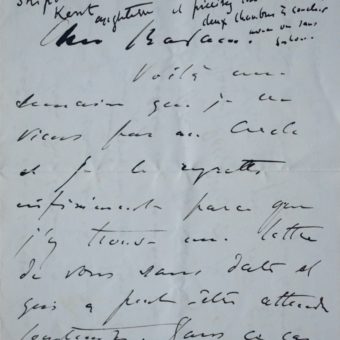 Kent angleterre et
deux chambres à coucher
avec ou sans
salon.
Chère Madame.
Voilà une
semaine que je ne
viens pas au Cercle
et je le regrette
infiniment parce que
j'y trouve une lettre
de vous sans date et
qui a peut-être attendu
longtemps. Dans ce cas